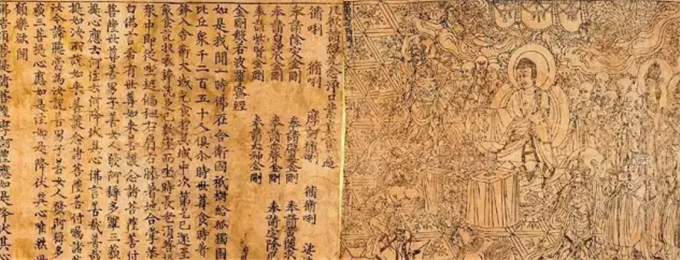 凡欲讀經先念淨口業真言一遍
脩唎 脩唎 摩訶脩唎 脩脩唎 娑
奉請除災金剛 奉請辟毒金剛
奉請黃隨求金剛 奉請白淨水金剛
奉請赤聲金剛 奉請定除災金剛
奉請紫賢金剛 奉請大神金剛
金剛般若波羅蜜經
如是我聞一時佛在舍衛國祇樹給孤獨園
比丘衆千二百五十人俱尒時世尊食時着
鉢入舍衛大城乞食於其城中次第乞已還至
飯食訖收衣鉢洗足已敷座而坐時長老須菩提
衆中即從座起偏袒右肩右膝著地合掌恭
白佛言希有世尊如來善護念諸菩薩善付
菩薩世尊善男子善女人發阿耨多羅三藐
提心應云何住云何降伏其心佛言善哉善哉
提如汝所說如來善護念諸菩薩善付囑諸菩
汝今諦聽當爲汝說善男子善女人發阿耨多
藐三菩提心應如是住如是降伏其心唯然世
願樂欲聞
須菩提諸菩薩摩訶薩應如是降伏其心